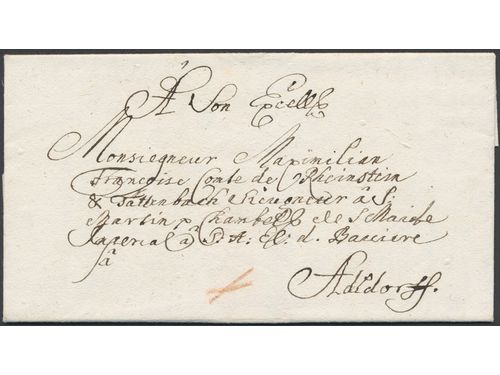 À Son Excell
Monsieqneur Maximilian
Françoise Comte de Rheinstein
& Tattenbach Sieuoneur â S:
Martin p Chamb de S Maiste
Imperial â S: A: El: d. Baviere
â
Adldorff.